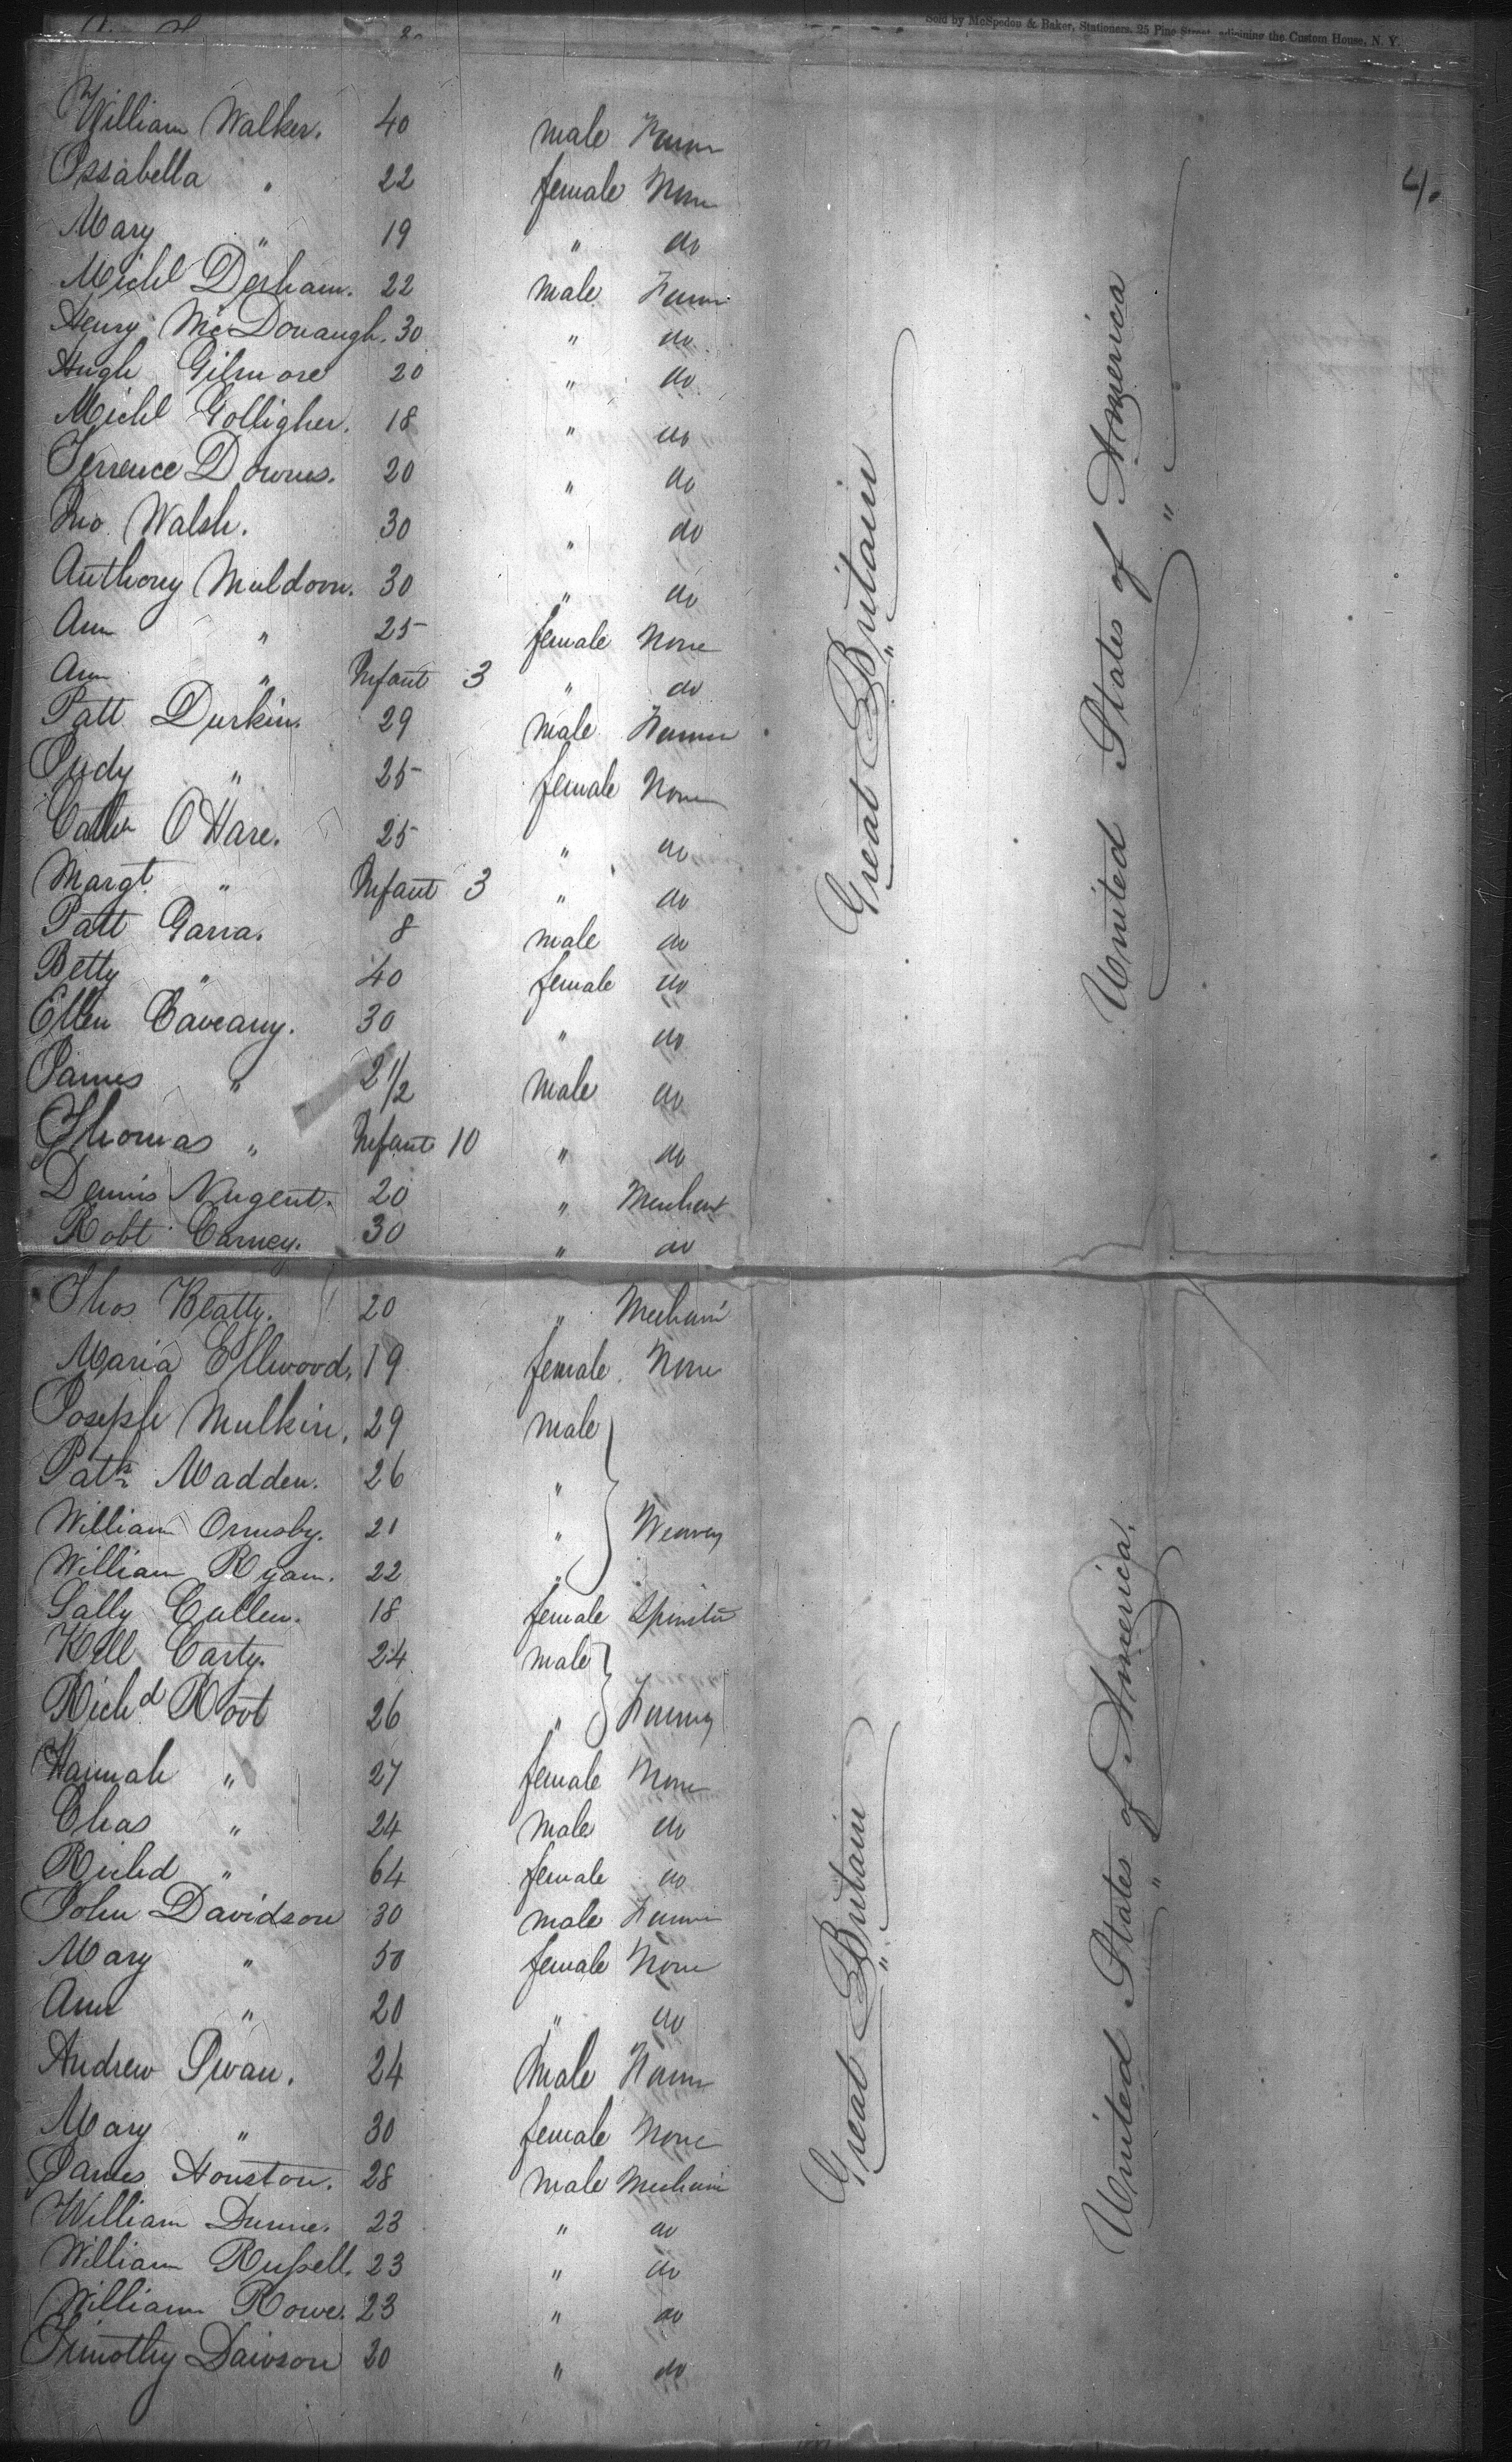 Sold by McSpedon & Baker, Stationers, 25 Pine Street, adjoining the Custom House, N. Y.
4.
William Walker. 40 male Farmer
Issabella " 22 female None
Mary " 19 " do
Michl Derham. 22 male Farmer
Henry McDonaugh. 30 " do
Hugh Gilmore 20 " do
Michl Golligher. 18 " do
Terrence Downs. 20 " do
Jno Walsh. 30 " do
Anthony Muldoon. 30 " do
Ann " 25 female None
Ann " Infant 3 " do
Patt Durkin. 29 male Farmer
Judy " 25 female None
Cathn O'Hare. 25 " do
Margt. " Infant 3 " do
Patt Garra. 8 male do
Betty " 40 female do
Ellen Caveany. 30 " do
James " 2 1/2 male do
Thomas " Infant 10 " do
Dennis Nugent. 20 " Merchant
Robt Carney. 30 " do
Great Britain
"
United States of America
"
Thos Beatty. 20 " Mechanic
Maria Ellwood. 19 female None
Joseph Mulkin. 29 male
Patk Madden. 26 "
William Ormsby. 21 " Weavers
William Ryan. 22 "
Sally Cullen. 18 female Spinster
Kell Carty. 24 male
Richd Root 26 " Farmers
Hannah " 27 female None
Chas " 24 male do
Richd " 64 female do
John Davidson 30 male Farmer
Mary " 50 female None
Ann " 20 " do
Andrew Swan. 24 male Farmer
Mary " 30 female None
James Houston. 28 male Mechanic
William Dunne. 23 " do
William Russell. 23 " do
William Rowe. 23 " do
Timothy Dawson 20 " do
Great Britain
"
United States of America.
"